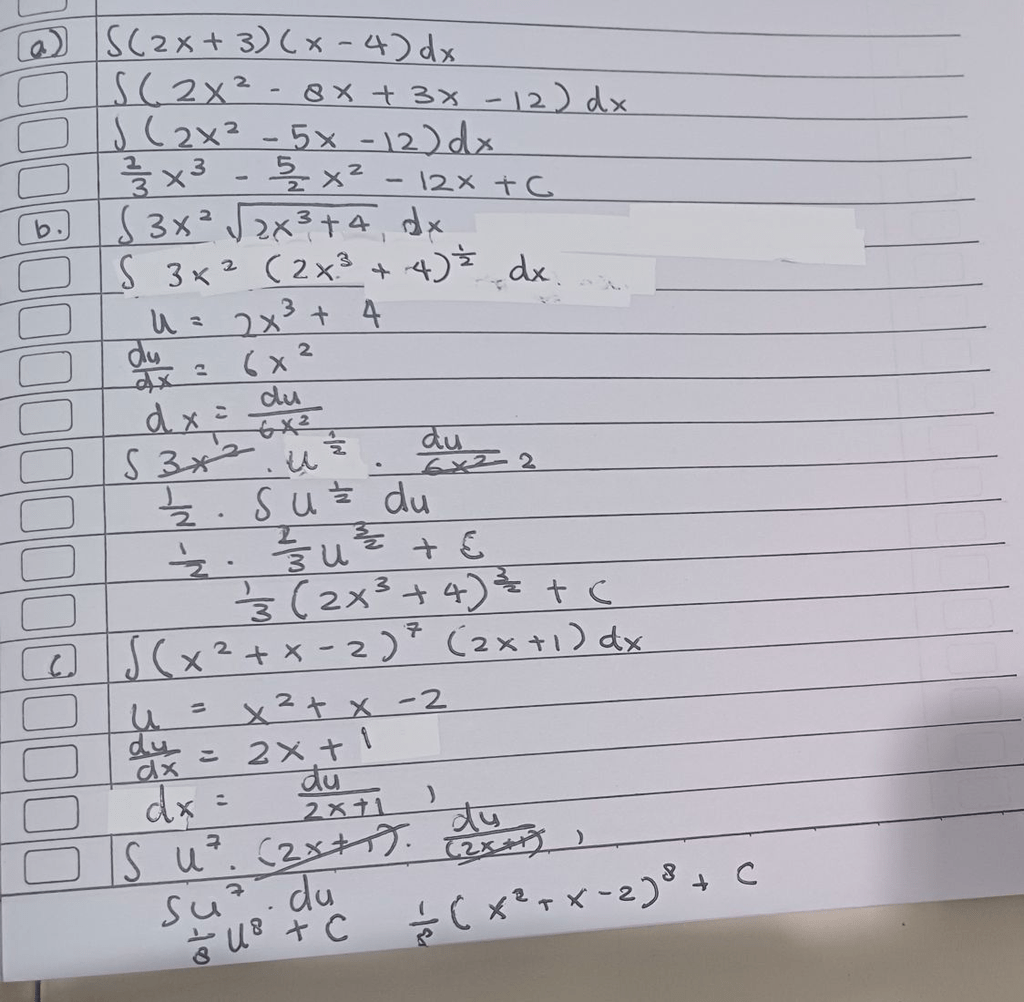 a) ∫(2x + 3)(x - 4) dx
∫(2x² - 8x + 3x - 12) dx
∫(2x² - 5x - 12) dx
2/3 x³ - 5/2 x² - 12x + C
b. ∫ 3x² √(2x³ + 4) dx
∫ 3x² (2x³ + 4)^½ dx
u = 2x³ + 4
du/dx = 6x²
dx = du/6x²
∫ 3x² 1 . u^½ . du/6x² 2
½ . ∫ u^½ du
½ . 2/3 u^3/2 + C
1/3 (2x³ + 4)^3/2 + C
c. ∫(x² + x - 2)⁷ (2x + 1) dx
u = x² + x - 2
du/dx = 2x + 1
dx = du/2x+1
∫ u⁷ . (2x+1) . du/(2x+1)
∫u⁷ . du
1/8 u⁸ + C 1/8 (x² + x - 2)⁸ + C